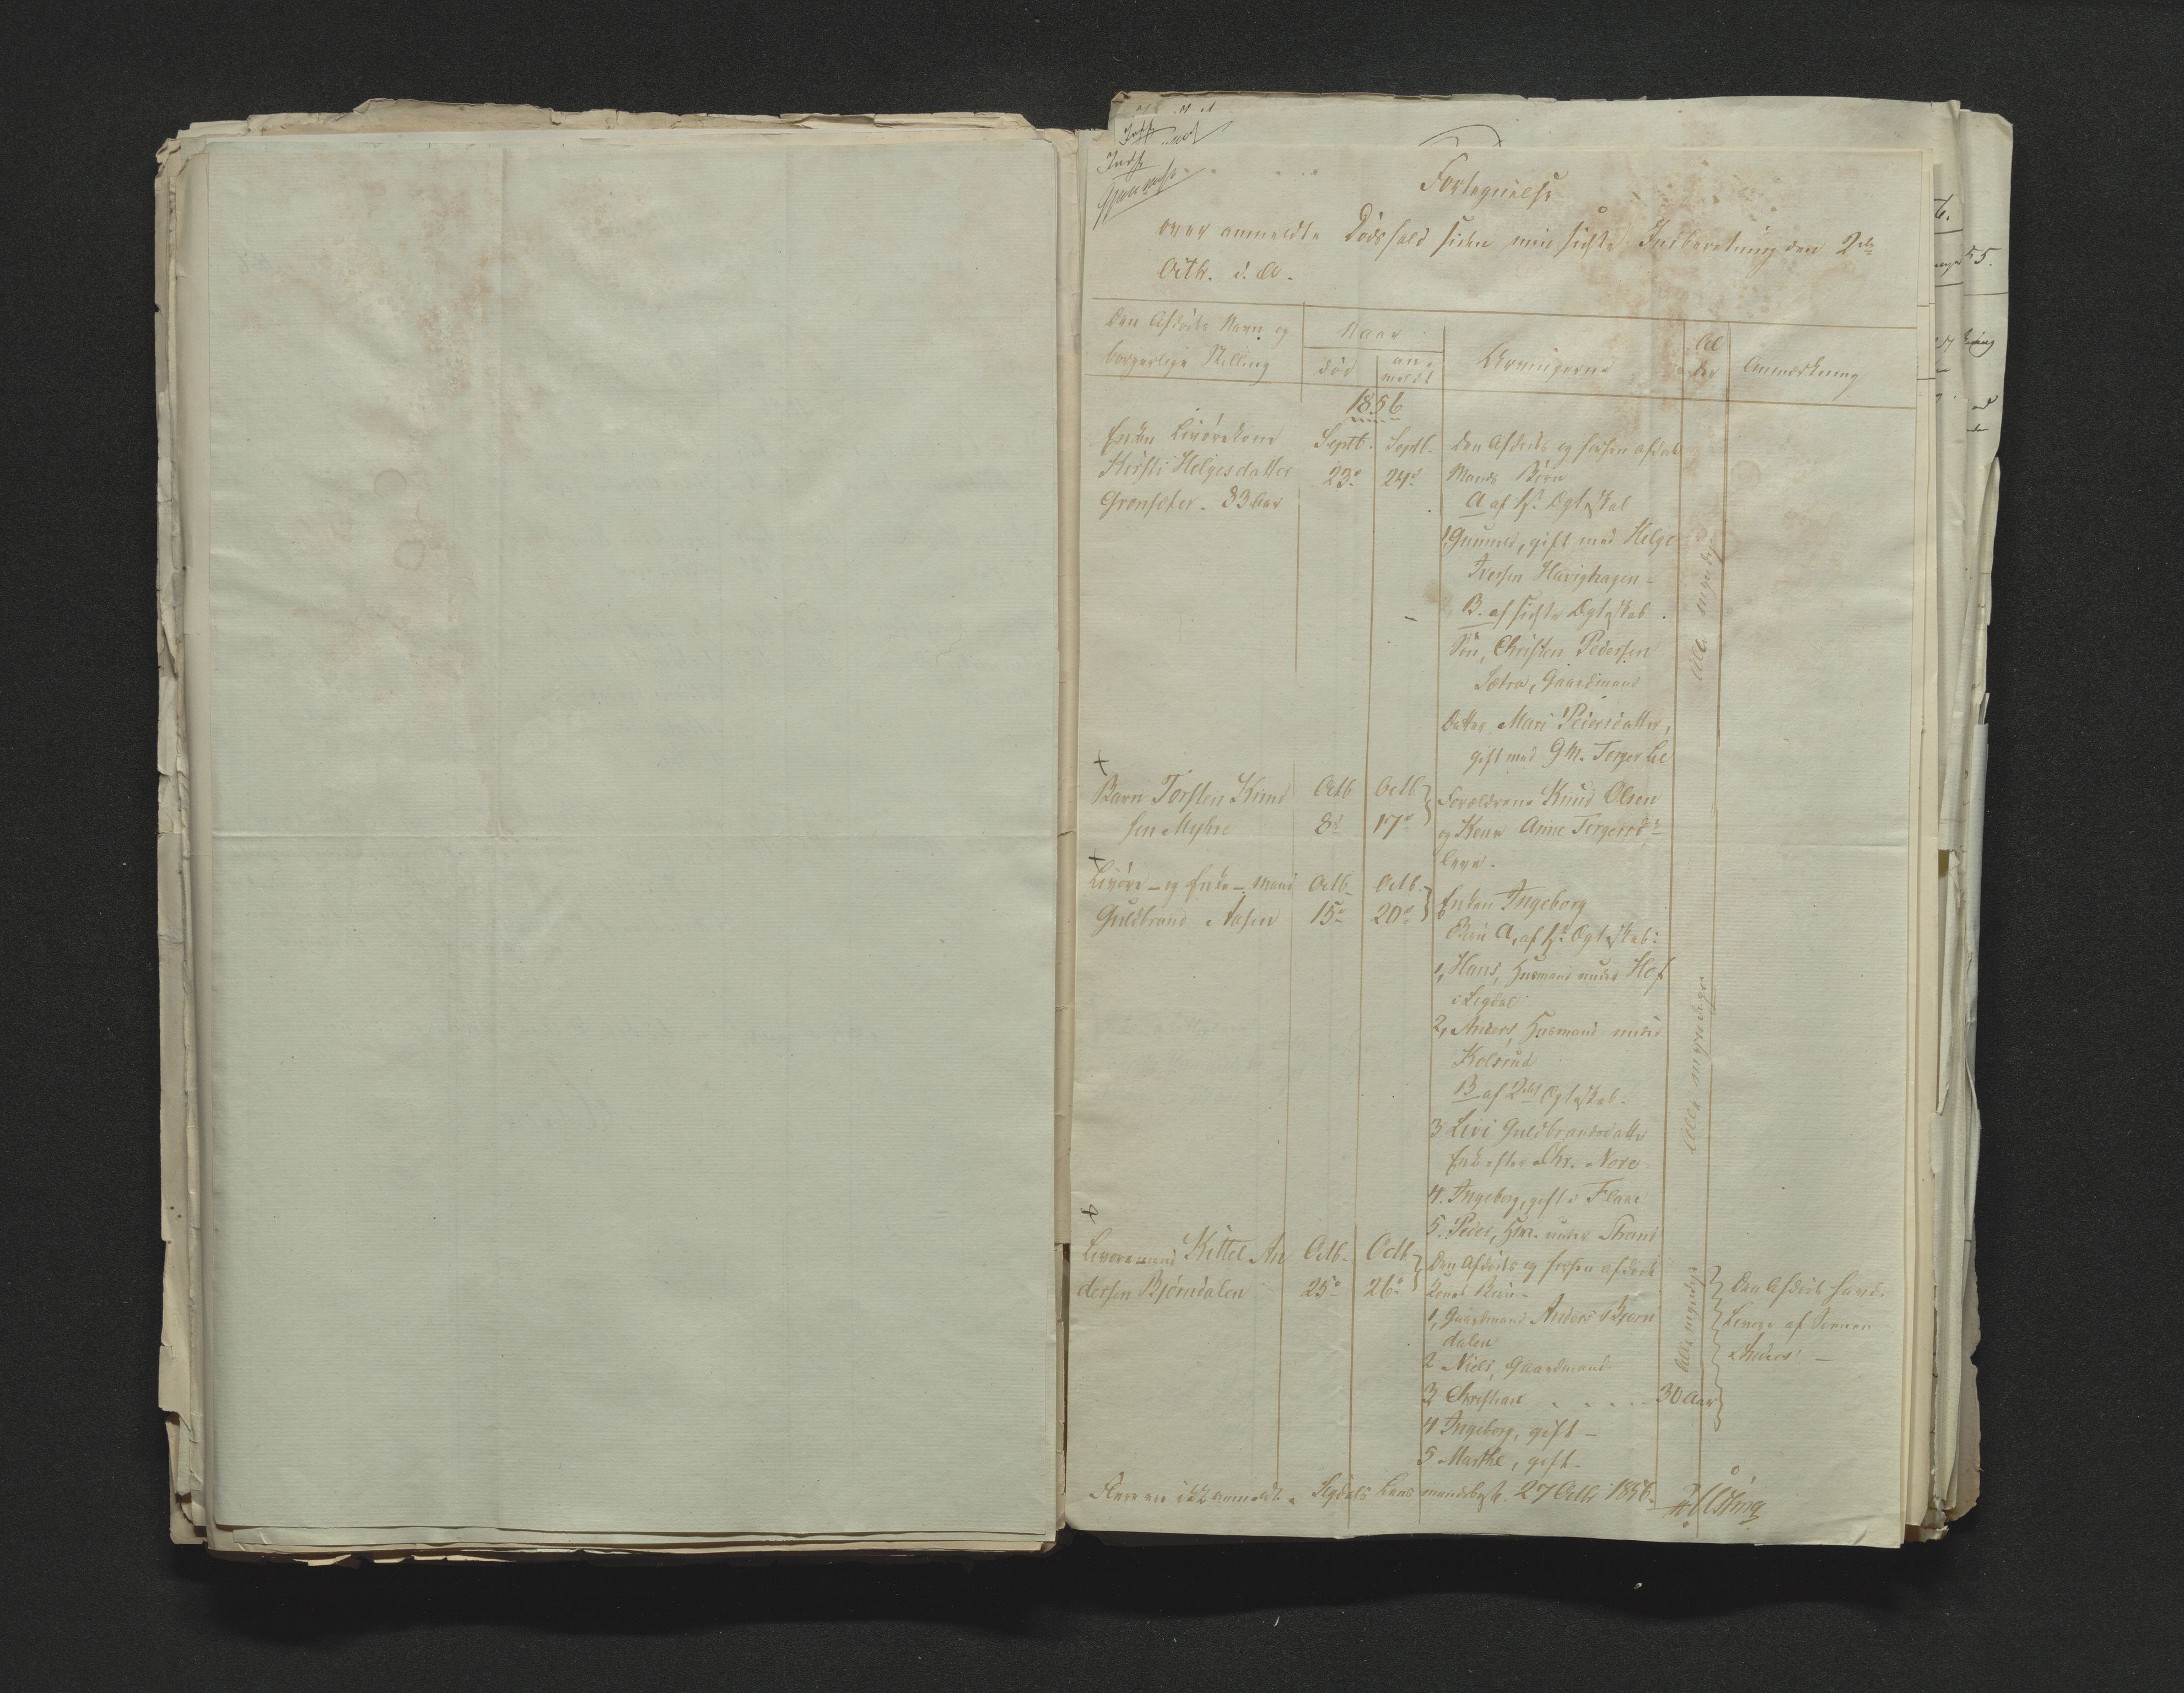 Indf
Fortegnelse
over anmeldte Dødsfald siden min sidste Indberetning den 2den
Octb. d. A.
Den Afdødes Navn og
borgerlige Stilling
Naar
død
an-
meldt
Arvingerne
Al
der
Anmærkning
1856
Enken Livørekone
Kirsti Helgesdatter
Grønseter. 83 Aar
Septb. 23de
Septb. 24de
Den Afdødes og forhen afdøde
Mands Børn
A af 1ste Ægteskab
1, Gunnild, gift med Helge
Iversen Havighagen -
B. af sidste Ægteskab.
Søn, Christen Pedersen
Sætra, Gaardmand
Datter Mari Pedersdatter,
gift med GM. Torger Lie
Alle myndige
+
Barn Torsten Knud
sen Myhre
Octb 8de
Octb 17de
Forældrene Knud Olsen
og Kone Anne Torgersdr
leve.
+
Livøre- og Enke-Mand
Guldbrand Aasen
Octb. 15de
Octb. 20de
Enken Ingeborg
Børn A, af 1ste Ægteskab:
1, Hans, Husmand under Hof
i Sigdal
2, Anders, Husmand under
Kolsrud
B af 2det Ægteskab.
3 Livi Guldbrandsdatter
Enke efter Chr. Nore
4. Ingeborg, gift i Flaae
5. Peder, Hm. under Strand
Alle myndige
+
Livøremand Kittel An
dersen Bjørndalen
Octb. 25de
Octb. 26de
Den Afdødes og forhen afdøde
Kones Børn -
1, Gaardmand Anders Bjørn
dalen
2 Niels, Gaardmand
3 Christian . . . . . 30 Aar
4 Ingeborg, gift -
5 Marthe, gift -
Alle myndige
Den Afdøde havde
Livøre af Sønnen
Anders -
Flere ere ikke anmeldte. Sigdals Lensmandsbest. 27 Octbr 1856.